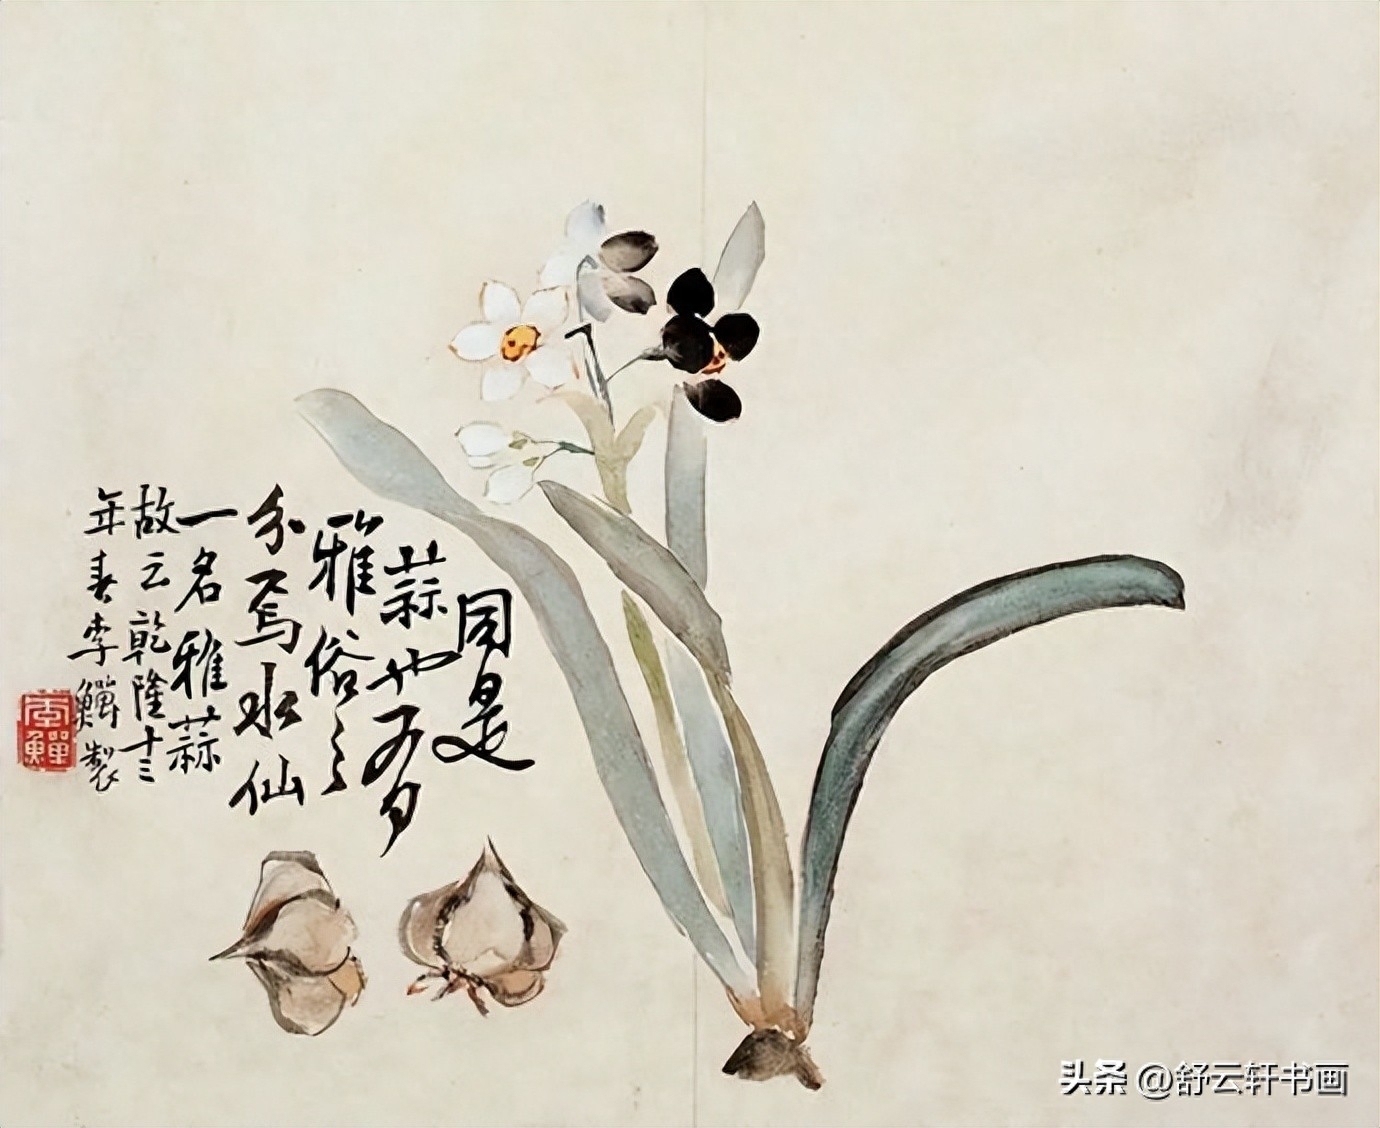 同是
蒜也而有
雅俗之
分焉水仙
一名雅蒜
故云乾隆十三
年春李鱓製
头条 @舒云轩书画